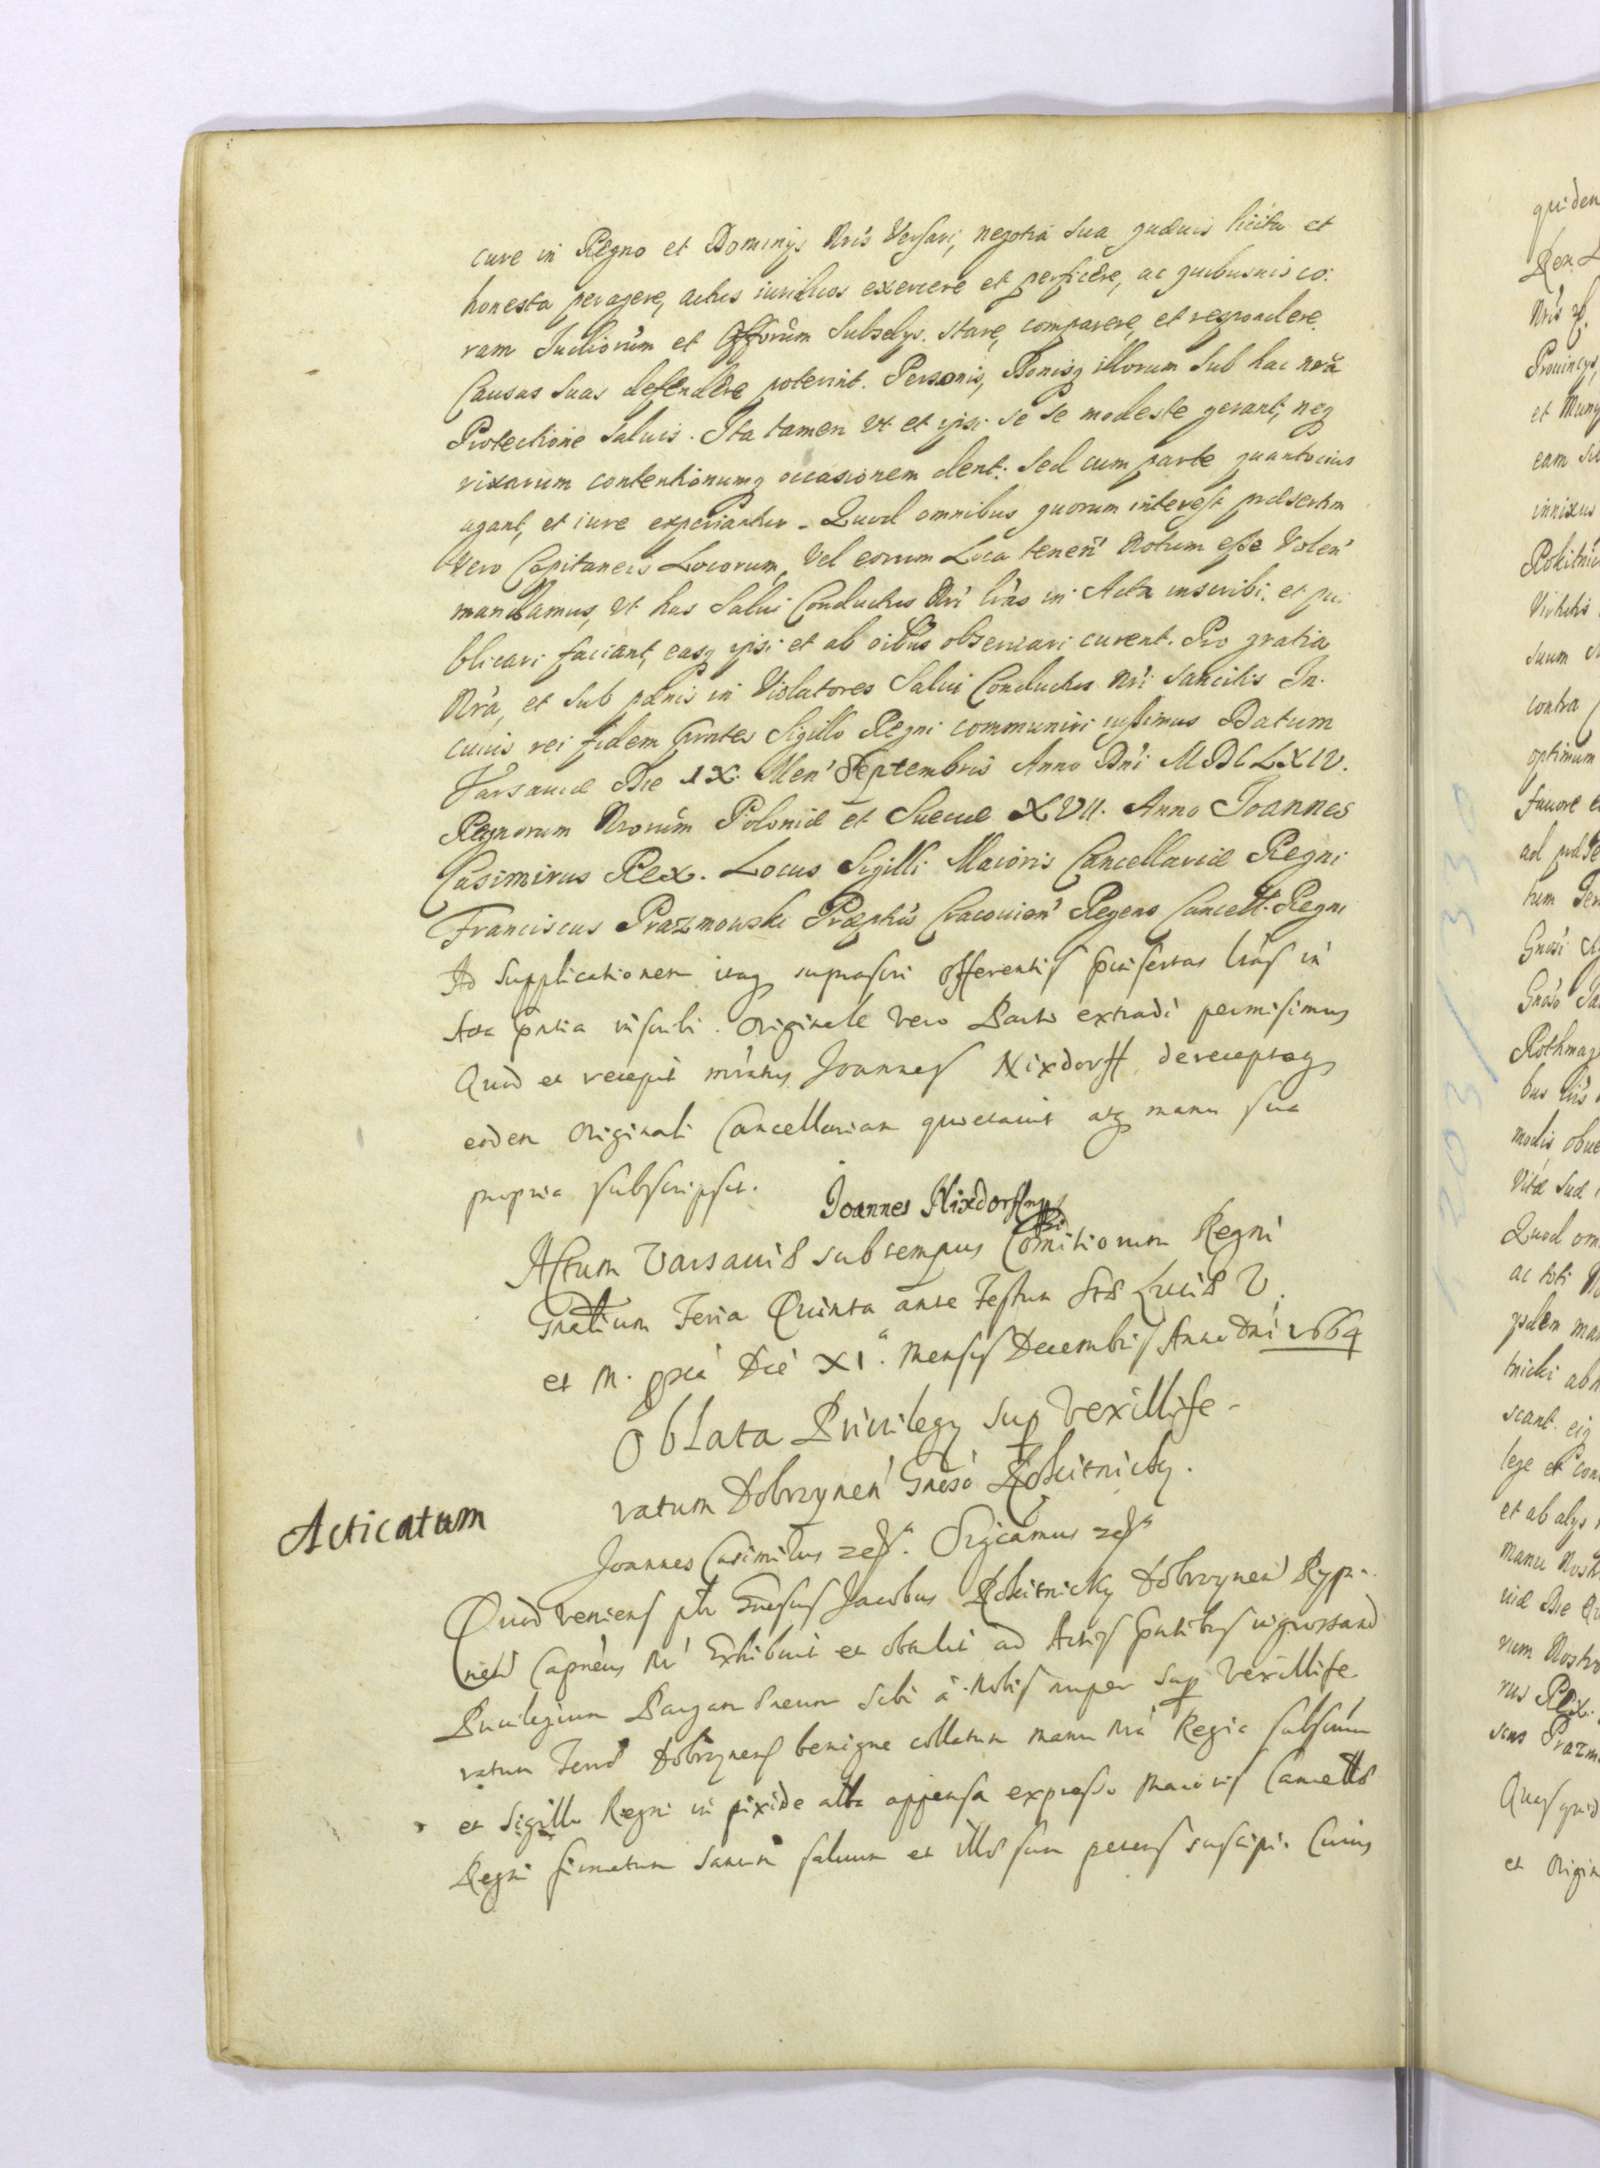 cure in Regno et Dominijs Nris Versari, negotia sua quævis licita et
honesta peragere, actus iuridicos exercere et perficere, ac quibusvis co:
ram Judiciorum et Offorum Subselys. stare, comparere, et respondere
Causas suas defendere poterint. Personis, Bonisq illorum Sub hac nrã
Protectione Salvis. Ita tamen Vt et ipsi se se modeste gerant, neq
rixarum contentionumq occasionem dent: sed cum parte quantocius
agant, et iure experiantur. Quod omnibus quorum interest præsertim
Vero Capitaneis Locorum, vel eorum Loca tenen' Notum esse Volen'
mandamus, Vt has Salui Conductus Nri lrás in Acta inscribi. et pu:
blicari faciant, easq ipsi et ab oibus observari curent. Pro gratia
Nrá, et Sub pœnis in Violatores Salui Conductus Nri Sancitis In
cuius rei fidem Prntes Sigillo Regni communiri iussimus Datum
Varsaviæ Die IX. Men' Septembris Anno Dni MDCLXIV.
Regnorum Nrorum Poloniæ et Sueciæ XVII. Anno Joannes
Casimirus Rex. Locus Sigilli Maioris Cancellariæ Regni
Franciscus Prazmowski Præptus Cracovien' Regens Cancell. Regni
Ad supplicationem itaq suprascri offerentis prinsertas lrás in
Acta prntia inscribi. Originale vero Parti extradi permisimus
Quod et recepit mratus Joannes Nixdorff, de receptoq
eodem Originali Cancellariam quietavit atq manu sua
propria subscripsit. Joannes Nixdorff mpp
Actum Varsaviæ sub tempus Comitiorum Regni
Gnalium Feria Quinta ante Festum Stæ Luciæ V.
et M. pxia Die XIa. Mensis Decembris Anno Dni 1664
Oblata Privilegy sup Vexillife-
ratum Dobrzynen' Gnoso Rokitnicky.
Acticatum
Joannes Casimirus zch. Significamus zch
Quod veniens pnr Gnosus Jacobus Rokitnicky Dobrzynen' Rypi-
nen' Capneus Nri Exhibuit et obtulit ad Actis prntibus ingrossand
Privilegium Pargameneum sibi á Nobis nuper sup Vexillife
ratum Terræ Dobrzynens benigne collatum manu Nrá Regia subscrium
et Sigillo Regni in pixide alba appensa expresso Maioris Cancellæ
Regni firmatum sanum salvum et illæsum petens suscipi. Cuius